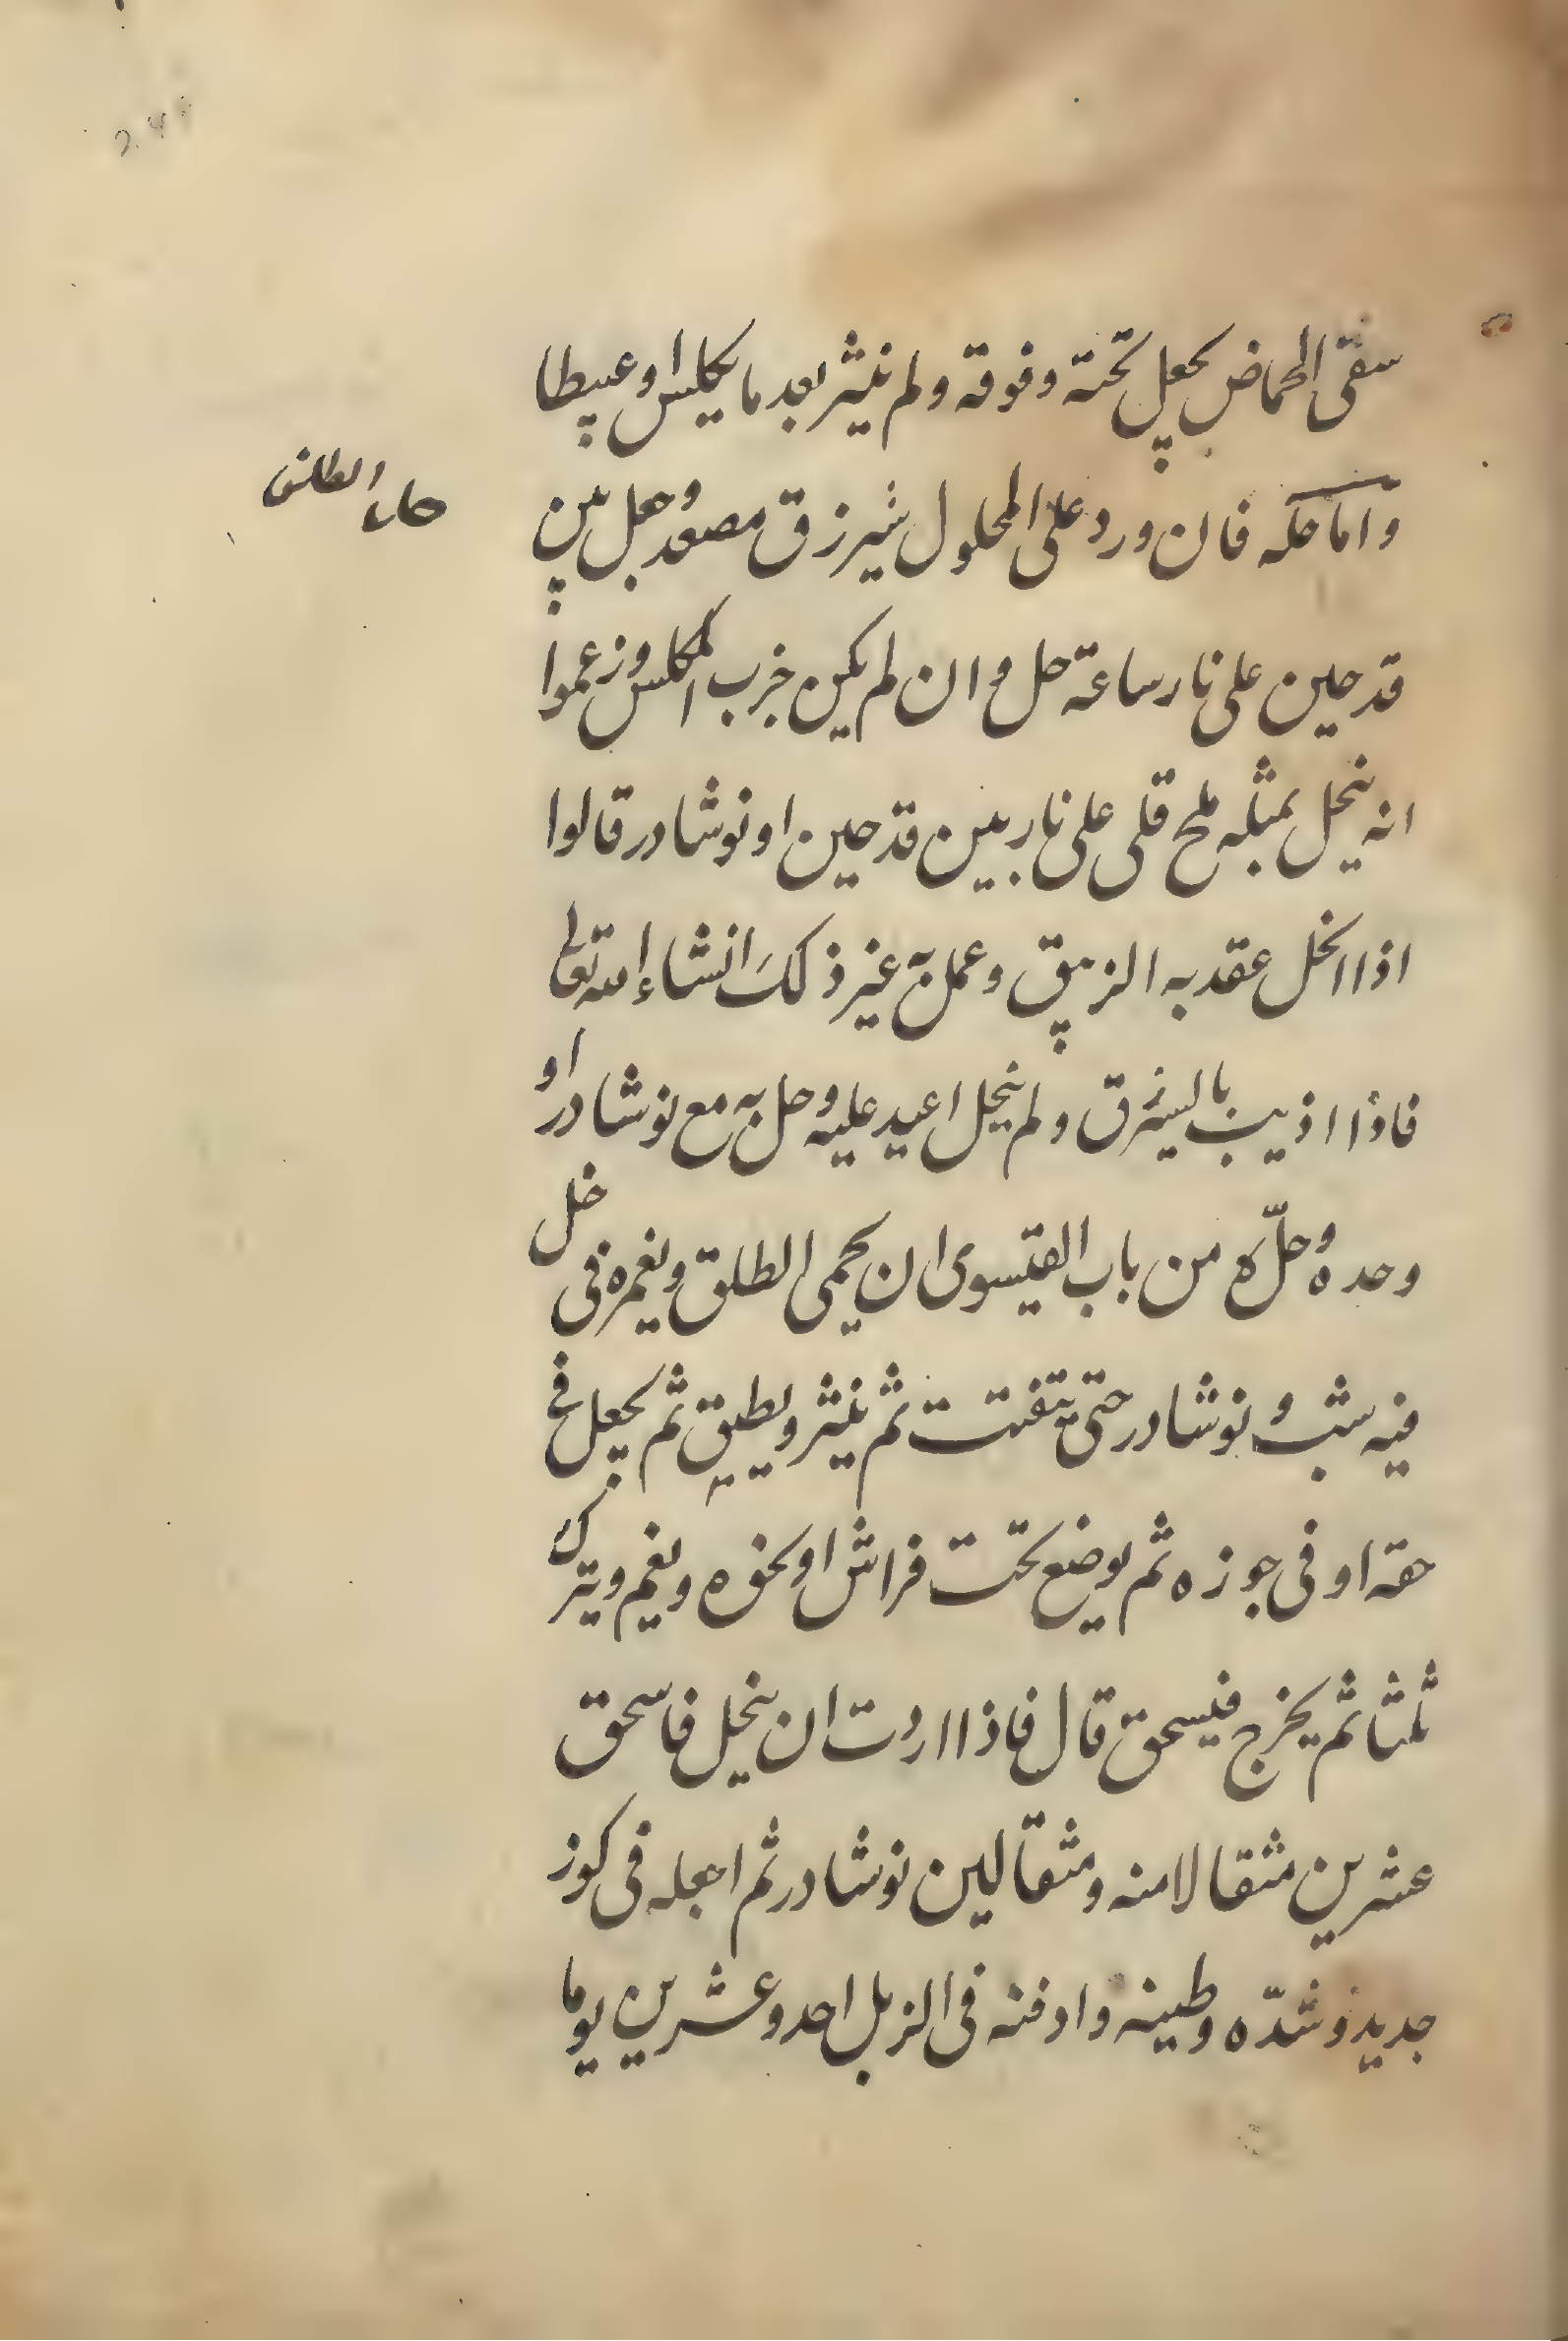 سقى الحماض يجعل تحته وفوقه ولم ينثر بعد ما يكلس او عبيطا
واما حله فان ورد على المحلول شيرزق مصعد وجعل بين
حل الطلق
قدحين على نار ساعة حل وان لم يكن خرب المكلس وزعموا
انه ينحل بمثله ملح قلى على نار بين قدحين او نوشادر قالوا
اذا انحل عقد به الزيبق وعمل به غير ذلك انشاء الله تعالى
فاذا اذيب بالسيرزق ولم ينحل اعيد عليه وحل به مع نوشادر او
وحده وحلّه من باب القيسوى ان يحمى الطلق ويغمره فى خل
فيه شب ونوشادر حتى يتفتت ثم ينثر ويطيق ثم يجعل فى
حقة او فى جوزه ثم يوضع تحت فراش او نحوه ويغم ويترك
ثلثا ثم يخرج فيسحق قال فاذا اردت ان ينحل فاسحق
عشرين مثقالا منه ومثقالين نوشادر ثم اجعله فى كوز
جديد وشدّه وطينه وادفنه فى الزبل احد وعشرين يوما